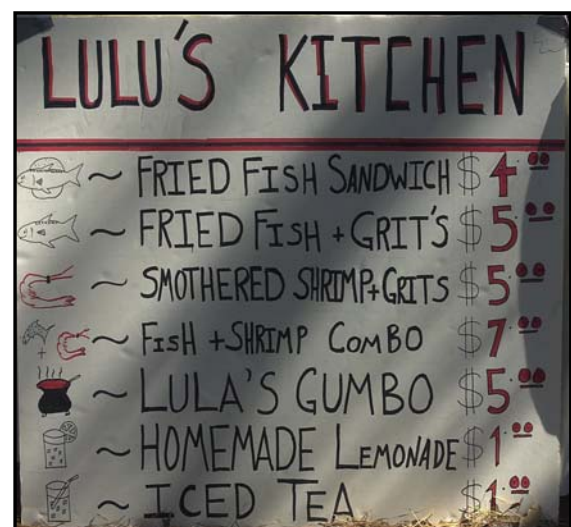 LULU'S KITCHEN
~ FRIED FISH SANDWICH $4.00
~ FRIED FISH + GRIT'S $5.00
~ SMOTHERED SHRIMP + GRITS $5.00
~ FISH + SHRIMP COMBO $7.00
~ LULA'S GUMBO $5.00
~ HOMEMADE LEMONADE $1.00
~ ICED TEA $1.00